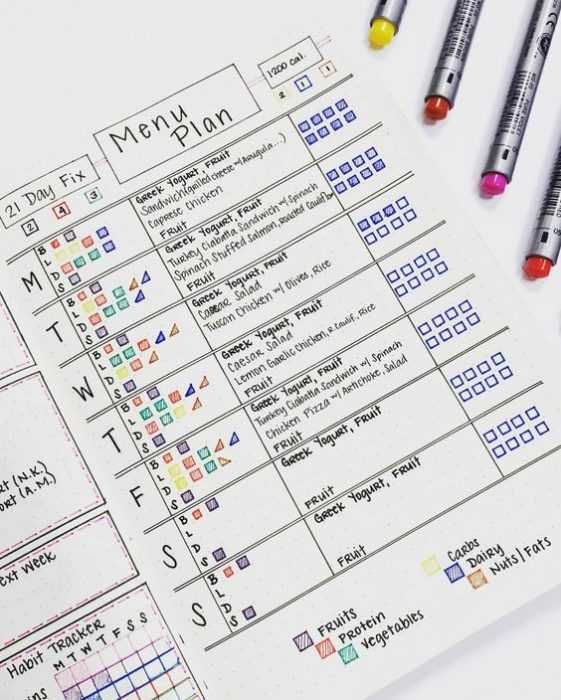 Menu Plan
1200 cal.
2 1 1
21 Day Fix
2 4 3
M
B
L
D
S
Greek Yogurt, Fruit
Sandwich (grilled cheese w/ Arugula...)
Caprese Chicken
Fruit
T
B
L
D
S
Greek Yogurt, Fruit
Turkey Ciabatta Sandwich w/ Spinach
Spinach Stuffed Salmon, Roasted Cauliflower
Fruit
W
B
L
D
S
Greek Yogurt, Fruit
Caesar Salad
Tuscan Chicken w/ Olives, Rice
T
B
L
D
S
Greek Yogurt, Fruit
Caesar Salad
Lemon Garlic Chicken, R. Caulif., Rice
Fruit
F
B
L
D
S
Greek Yogurt, Fruit
Turkey Ciabatta Sandwich w/ Spinach
Chicken Pizza w/ Artichoke, Salad
Fruit
S
B
L
D
S
Greek Yogurt, Fruit
Fruit
S
B
L
D
S
Greek Yogurt, Fruit
Fruit
(N.K.)
(A.M.)
Week
Habit Tracker
M T W T F S S
Fruits
Protein
Vegetables
Carbs
Dairy
Nuts/Fats